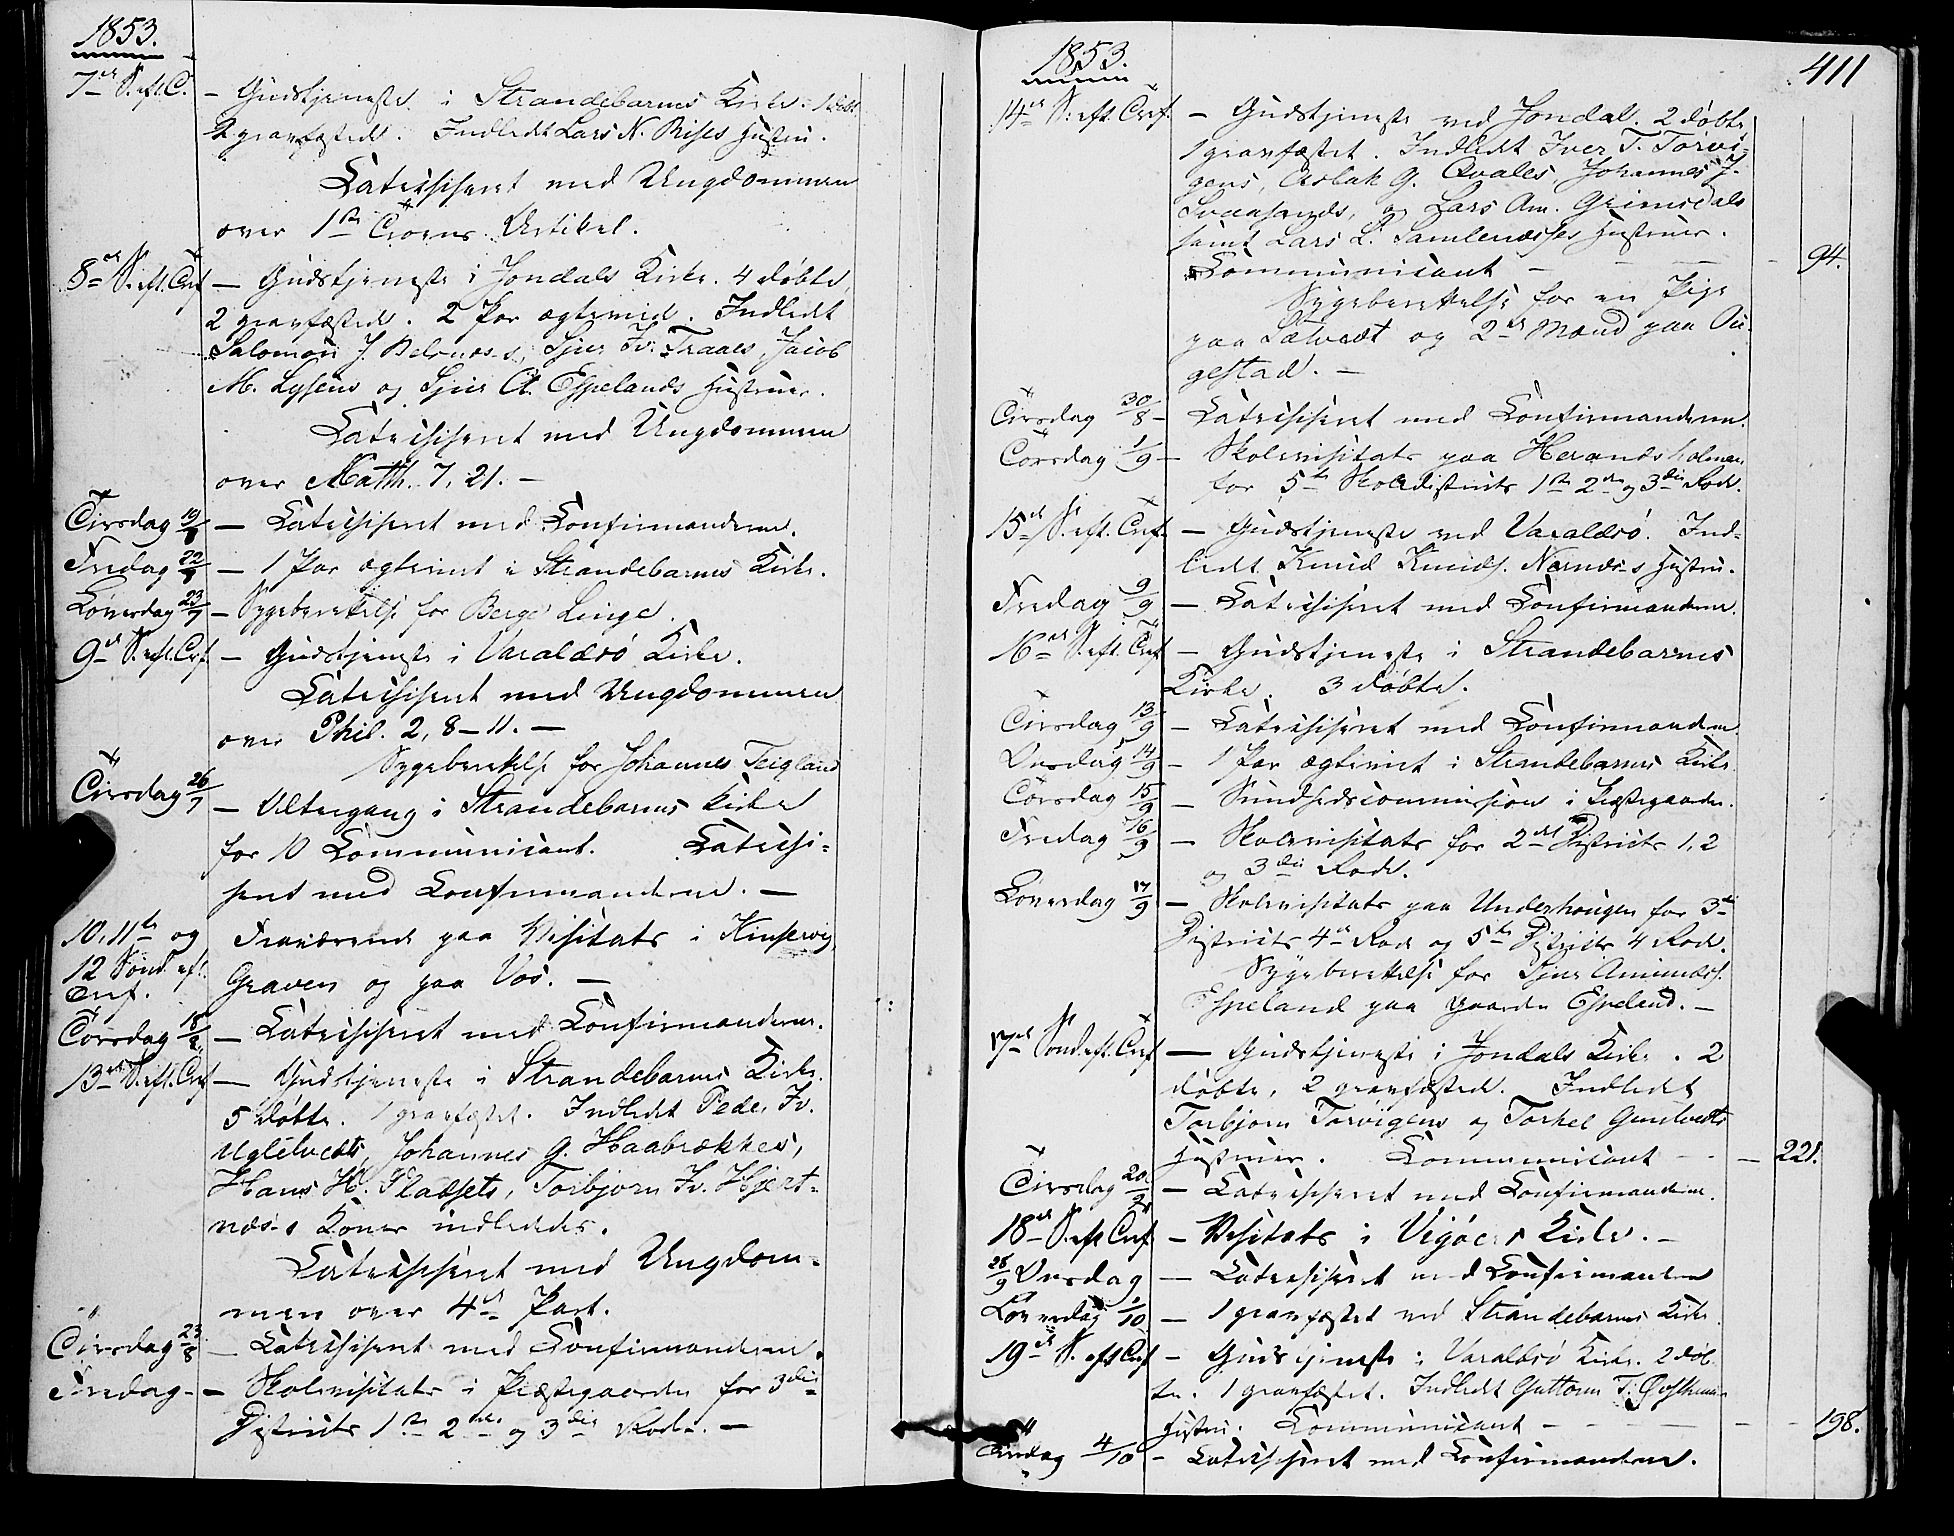 1853.
7de S. eft. T. — Gudstjeneste i Strandebarms Kirke.
2 gravfæstede. Indledt Lars N. Rises Hustru.
Catechiseret med Ungdommen
over 1ste Troens Artikel.
8de S. eft. Tref. — Gudstjeneste i Jondals Kirke. 4 døbte,
2 gravfæstede. 2 Par ægteviede. Indledt
Salomon J. Belsnæs's, Sjur Iv. Traaes, Jacob
M. Lysens og Sjur A. Espelands Hustruer.
Catechiseret med Ungdommen
over Matth. 7, 21. —
Tirsdag 19/7 — Catechiseret med Confirmanderne.
Fredag 22/7 — 1 Par ægteviet i Strandebarms Kirke.
Løverdag 23/7 — Sygeberettelse for Berge Linge.
9de S. eft. Tref. — Gudstjeneste i Varaldsö Kirke.
Catechiseret med Ungdommen
over Phil. 2, 8–11. —
Sygeberettelse for Johannes Teigland
Tirsdag 26/7 — Altergang i Strandebarms Kirke
for 10 Communicant. Catechi-
seret med Confirmanderne. —
10, 11te og Fraværende paa Visitats i Kinservig,
12 Sønd. eft. Graven og paa Vos. —
Tref.
Torsdag 18/8 — Catechiseret med Confirmanderne.
13de S. eft. Tref — Gudstjeneste i Strandebarms Kirke.
5 døbte. 1 gravfæstet. Indledt Peder Iv.
Uglelvedts, Johannes G. Haabrækkes,
Hans H. Pladsets, Torbjørn Iv. Hjert-
næs's Koner indlededes.
Catechiseret med Ungdom-
men over 4de Part.
Tirsdag 23/8 — Catechiseret med Confirmanderne.
Fredag — — Skolevisitats i Præstegaarden for 3die
Districts 1ste 2den og 3die Rode. —
411
1853.
14de S. eft. Tref. — Gudstjeneste ved Jondal. 2 døbte
1 gravfæstet. Indledt Iver T. Torvi-
gens, Aslak G. Qvales, Johannes J.
Svaasands, og Lars Am. Grimsdals
samt Lars L. Samlenæsses Hustruer.
Communicant — — — 94.
Sygeberettelse for en Pige
paa Sætvedt og 2de Mænd paa Au-
gestad. —
Tirsdag 30/8 — Catechiseret med Confirmanderne.
Torsdag 1/9 — Skolevisitats paa Herandsholmen
for 5te Skoledistricts 1ste 2den og 3die Rode.
15de S. eft. Tref. — Gudstjeneste ved Varaldsö. Ind-
ledt Knud Knuds. Nernæs's Hustru.
Fredag 9/9 — Catechiseret med Confirmanderne.
16de S. eft. Tref — Gudstjeneste i Strandebarms
Kirke. 3 døbte.
Tirsdag 13/9 — Catechiseret med Confirmanderne
Onsdag 14/9 — 1 Par ægteviet i Strandebarms Kirke
Torsdag 15/9 — Sundhedscommission i Præstegaarden.
Fredag 16/9 — Skolevisitats for 2det Districts 1, 2
og 3die Rode.
Løverdag 17/9 — Skolevisitats paa Underhougen for 3die
Districts 4de Rode og 5te Districts 4 Rode.
Sygeberettelse for Sjur Amundss.
Espeland paa Gaarden Espeland. —
17de Sønd. eft. Tref — Gudstjeneste i Jondals Kirke. 2
døbte, 2 gravfæstede. Indledt
Torbjørn Torvigens og Torkel
Hustruer. Communicant — — 221.
Tirsdag 20/9 — Catechiseret med Confirmanderne.
18de S. eft Tref — Visitats i Vigøers Kirke. —
28/9 Onsdag — Catechiseret med Confirmanderne
Løverdag 1/10 — 1 gravfæstet ved Strandebarms Kirke
19de S. eft Tref — Gudstjeneste i Varaldsö Kirke. 2 døb-
te. 1 gravfæstet. Indledt Guttorm T.
Hustru. Communicant — — — 198.
Tirsdag 4/10 — Catechiseret med Confirmanderne.